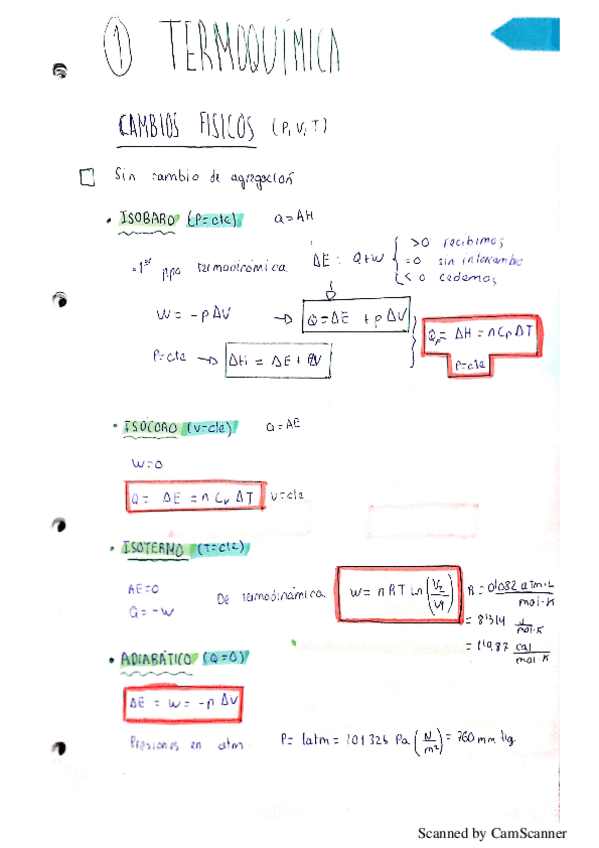 ① TERMOQUÍMICA
CAMBIOS FISICOS (P, V, T)
Sin cambio de agregación
• ISOBARO (P=cte) Q = ΔH
=1er ppo termodinámica ΔE = Q+W { >0 recibimos
=0 sin intercambio
<0 cedemos
W = -pΔV → Q = ΔE + pΔV
P=cte → ΔH = ΔE + PΔV
Qp = ΔH = nCpΔT
P=cte
• ISÓCORO (V=cte) Q = ΔE
W=0
Q = ΔE = n Cv ΔT V=cte
• ISOTERMO (T=cte)
ΔE=0
Q = -W
De termodinámica W = nRT Ln (V2/V1) R = 0'082 atm·L/mol·K
= 8'314 J/mol·K
= 1'987 cal/mol·K
• ADIABÁTICO (Q=0)
ΔE = W = -p ΔV
Presiones en atm P= 1atm = 101325 Pa (N/m²) = 760 mm Hg
Scanned by CamScanner